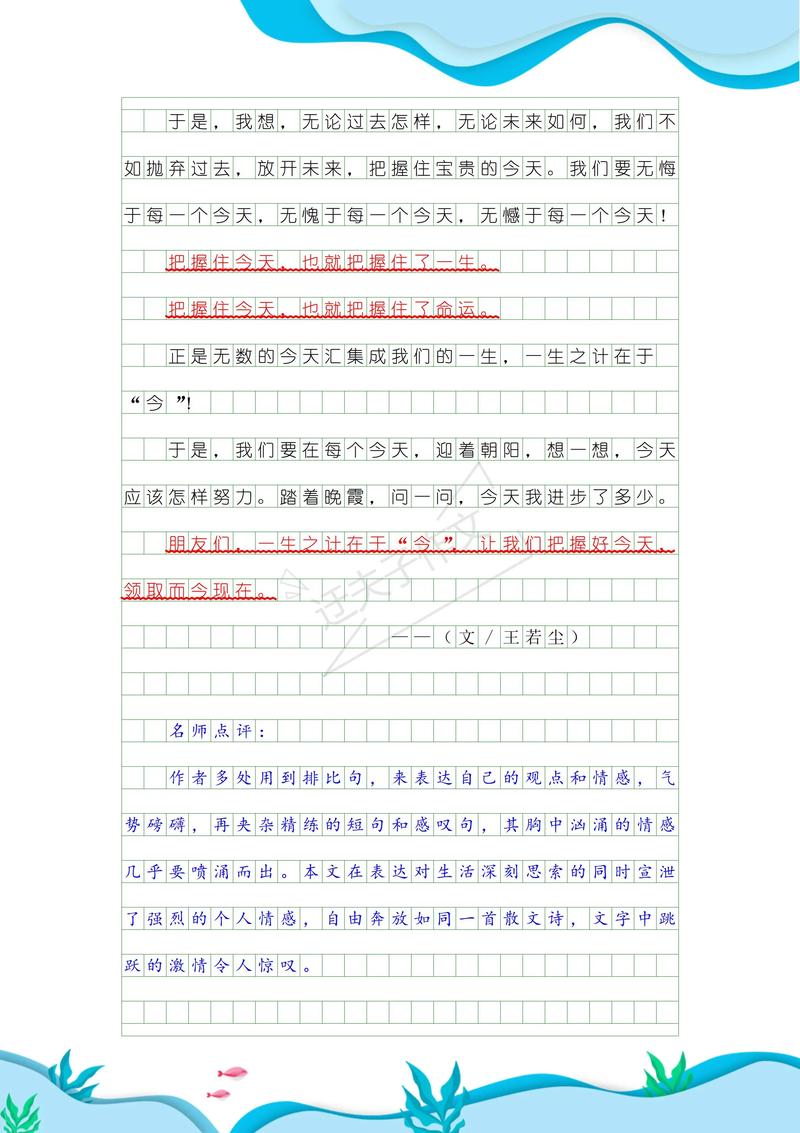 于是，我想，无论过去怎样，无论未来如何，我们不
如抛弃过去，放开未来，把握住宝贵的今天。我们要无悔
于每一个今天，无愧于每一个今天，无憾于每一个今天！
把握住今天，也就把握住了一生。
把握住今天，也就把握住了命运。
正是无数的今天汇集成我们的一生，一生之计在于
“今”！
于是，我们要在每个今天，迎着朝阳，想一想，今天
应该怎样努力。踏着晚霞，问一问，今天我进步了多少。
朋友们，一生之计在于“今”，让我们把握好今天，
领取而今现在。
——（文／王若尘）
名师点评：
作者多处用到排比句，来表达自己的观点和情感，气
势磅礴，再夹杂精练的短句和感叹句，其胸中汹涌的情感
几乎要喷涌而出。本文在表达对生活深刻思索的同时宣泄
了强烈的个人情感，自由奔放如同一首散文诗，文字中跳
跃的激情令人惊叹。
迂夫子作文